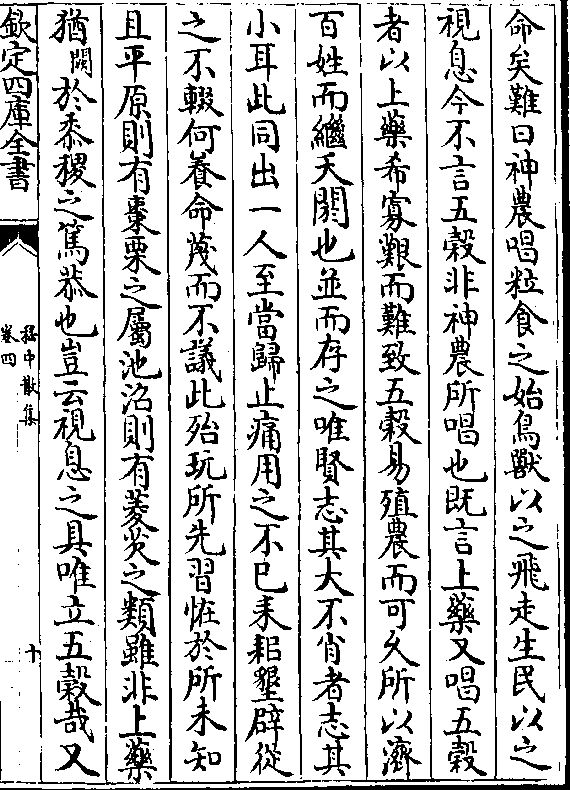 命矣難曰神農唱粒食之始鳥獸以之飛走生民以之
視息今不言五穀非神農所唱也既言上藥又唱五穀
者以上藥希寡艱而難致五穀易殖農而可久所以濟
百姓而繼夭閼也並而存之唯賢志其大不肖者志其
小耳此同出一人至當歸止痛用之不已耒耜墾辟從
之不輟何養命蔑而不議此殆玩所先習恠於所未知
且平原則有棗栗之屬池沼則有菱芡之類雖非上藥
猶闕於黍稷之篤恭也豈云視息之具唯立五穀哉又
欽定四庫全書
嵇中散集
卷四
十